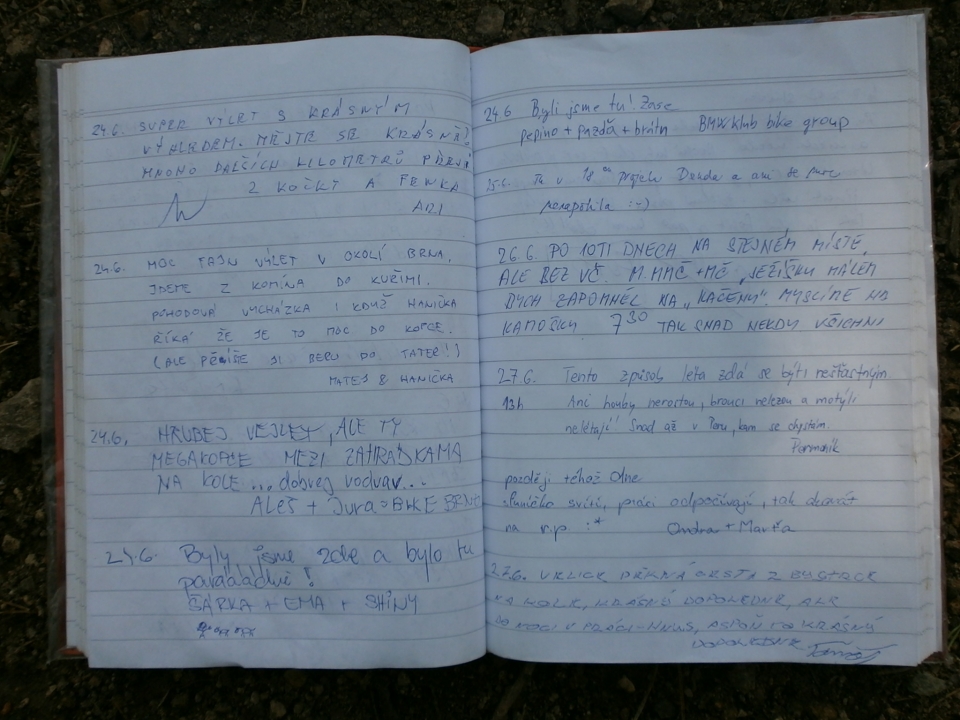 24.6. SUPER VÝLET S KRÁSNÝM
VÝHLEDEM. MĚJTE SE KRÁSNĚ,
MNOHO DALŠÍCH KILOMETRŮ
Z KOČKY A FENKA
24.6. MOC FAJN VÝLET V OKOLÍ BRNA.
JDEME Z KOMÍNA DO KUŘIMI.
POHODOVÁ VYCHÁZKA I KDYŽ HANIČKA
ŘÍKÁ ŽE JE TO MOC DO KOPCE.
(ALE JI BERU DO TATER!)
MATEJ & HANIČKA
24.6. HRUBEJ VEJLET, ALE TY
MEGAKOPCE MEZI ZAHRÁDKAMA
NA KOLE ... dobrej vodvav...
Aleš + Jura BIKE BRNO
24.6. Byly jsme zde a bylo tu
parááádní!
ŠÁRKA + EMA + SHINY
24.6 Byli jsme tu! Zase
pepino + pažďa + brátr BMW klub bike group
25.6. Tu v 18 projela a ani se moc
nezapotila :-)
26.6. PO 10TI DNECH NA STEJNÉM MÍSTĚ,
ALE BEZ VČ. M.MMČ+MČ, JEŽÍŠKU MÁLEM
BYCH ZAPOMNĚL NA "KAČENY". MYSLÍME NA
KAMOŠKY 7³⁰ TAK SNAD NEKDY VŠICHNI
27.6. Tento způsob léta zdá se býti nešťastným
13h Ani houby nerostou, brouci nelezou a motýli
nelétají! Snad až v Peru, kam se chystám.
Permoník
později téhož dne
sluníčko svítí, ptáci odpočívají, tak akorát
na r.p. :* Ondra + Marťa
27.6. VELICE PĚKNÁ CESTA Z BYSTRCE
NA KOLE, KRÁSNÝ DOPOLEDNE, ALE
DO NOCI V PRÁCI - HNUS, ASPOŇ TO KRÁSNÝ
DOPOLEDNE Tomáš